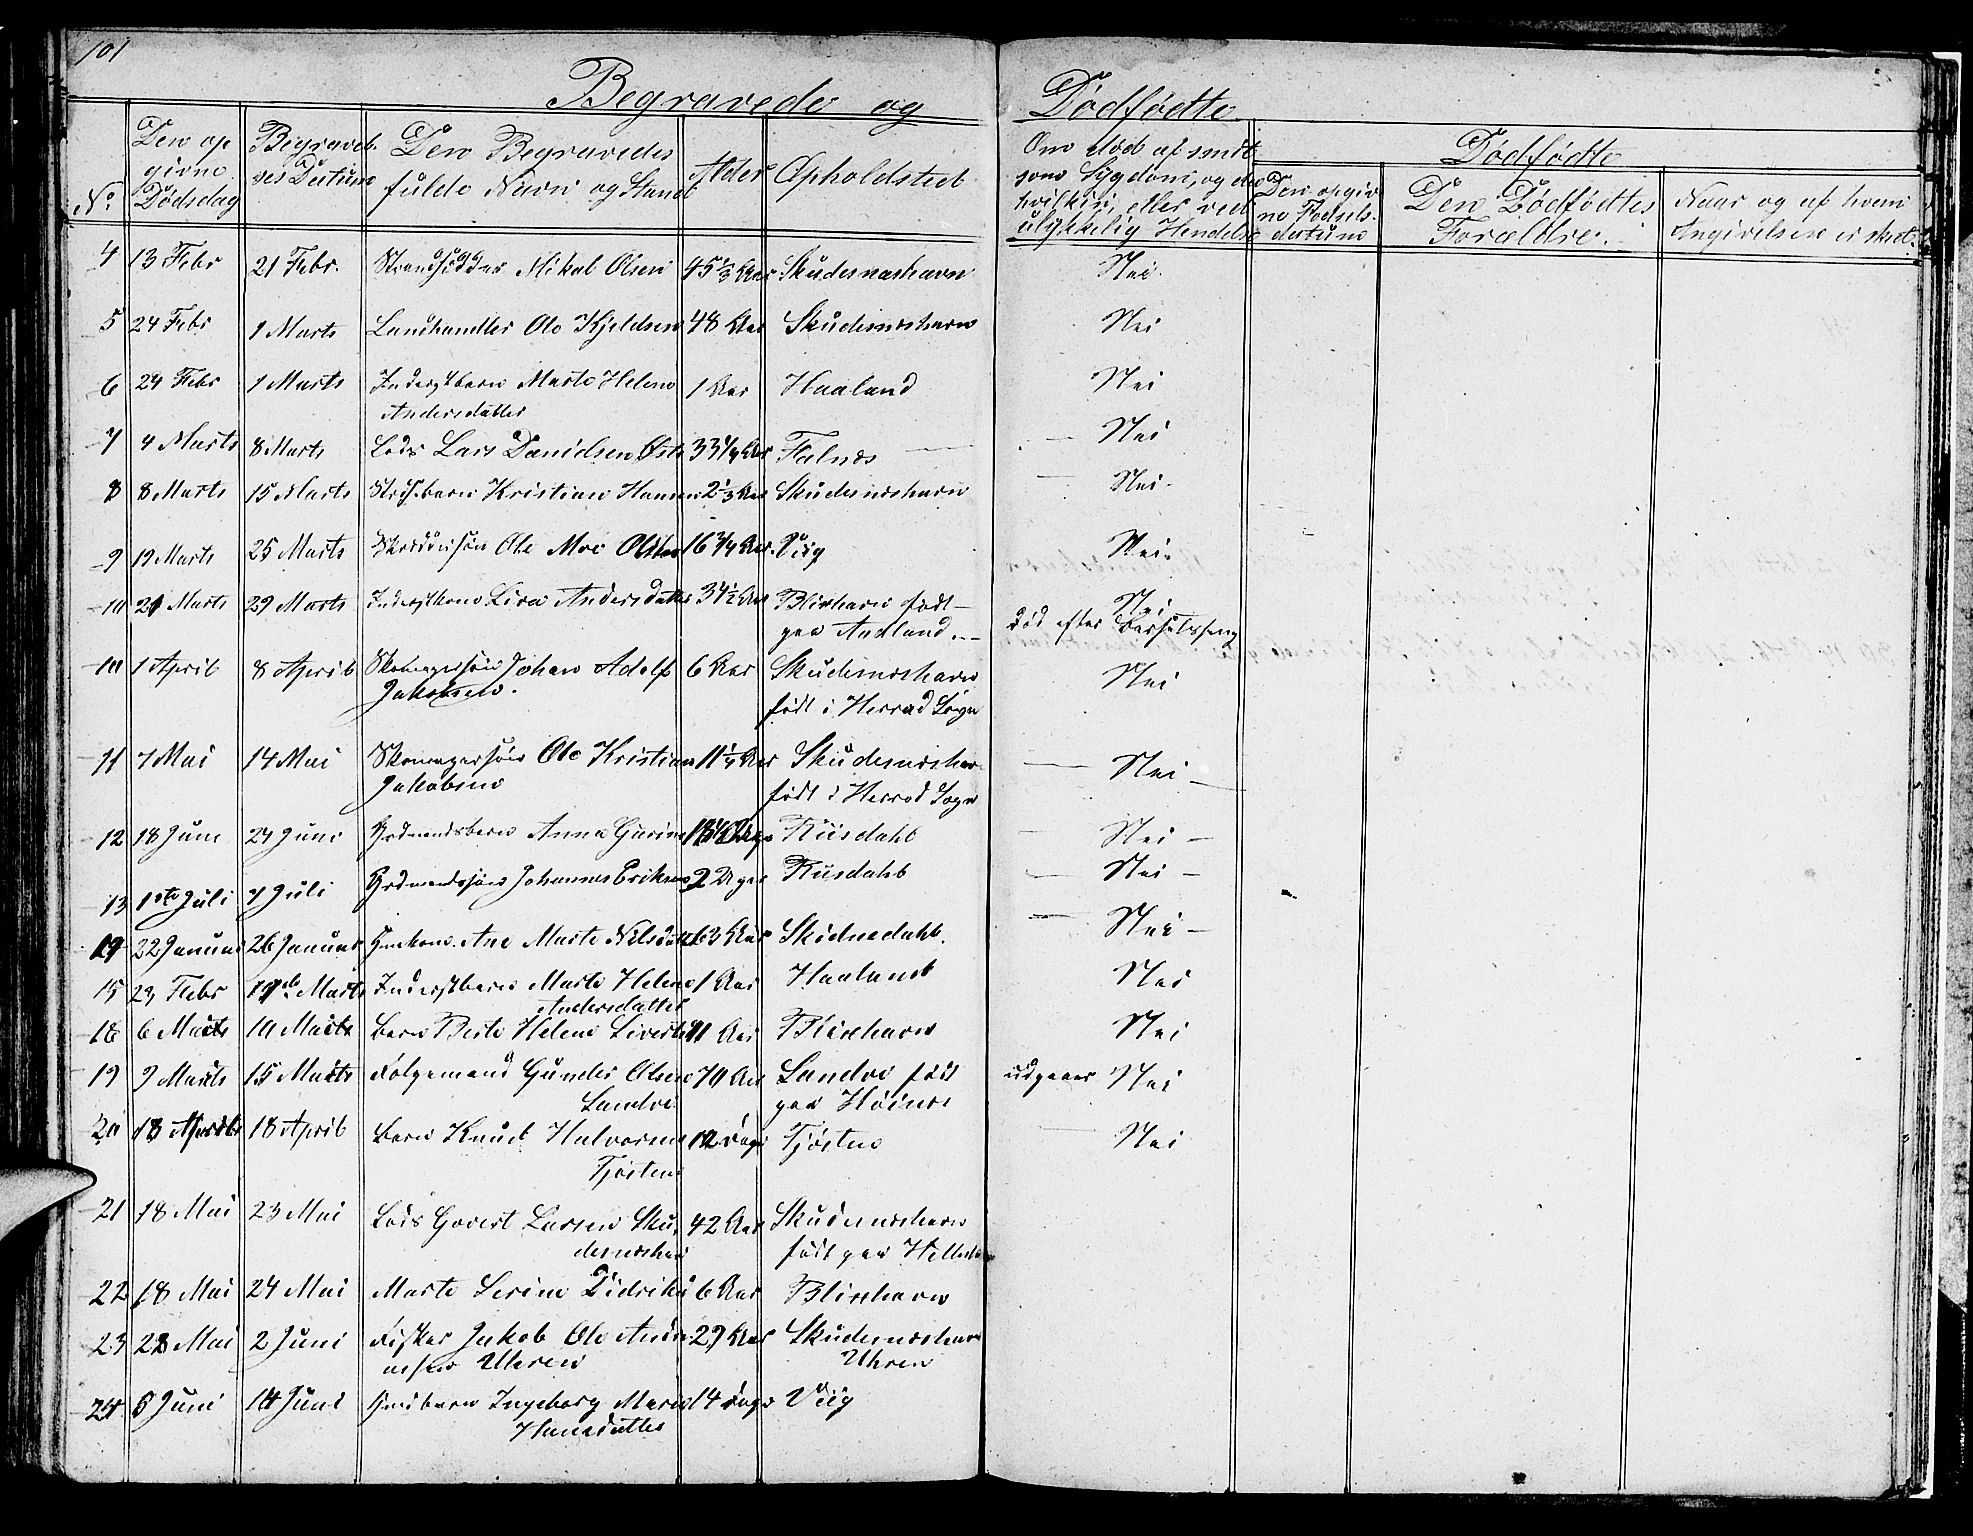 101
Begravede og Dødfødte
No
Den op
givne
Dødsdag
Begravel-
ses Datum
Den Begravedes
fulde Navn og Stand
Alder
Opholdsted
Om død af smit
som Sygdom, og
hvilken, eller ved
ulykkelig Hendelse
Dødfødte
Den opgiv
ne Fødsels-
datum
Den Dødfødtes
Forældre.
Naar og af hvem
Angivelsen er skeet.
4 13 Febr 21 Febr. Strandsidder Mikal Olsen 45 1/3 Aar Skudesneshavn Nei.
5 24 Febr 1 Marts Landhandler Ole Kjeldsen 48 Aar Skudesneshavn Nei
6 24 Febr 1 Marts Inderstbarn Marte Helene 1 Aar Haaland Nei
Andersdatter
7 4 Marts 8 Marts Lods Lars Danielsen 33 1/4 Aar Falnes Nei
8 8 Marts 15 Marts Strdsbarn Kristian Hansen 2 1/3 Aar Skudesneshavn Nei.
9 19 Marts 25 Marts Ole Moe 16 3/4 Aar Viig Nei.
10 21 Marts 29 Marts Inderstkone Lisa Andersdatter 34 1/2 Aar Blixhavn født Nei
paa Andland. død efter Barselseng
10 1 April 8 April Skomagersøn Johan Adolf 6 Aar Skudesneshavn Nei
Jakobsen. født i Herrad Sogn
11 7 Mai 14 Mai Skomagersøn Ole Kristian 11 1/4 Aar Skudesneshavn Nei
Jakobsen født i Herrod Sogn
12 18 Juni 24 Juni Grdmandsbarn Anna Gurine Risdahl Nei
13 1ste Juli 7 Juli Grdmandssøn Johannes Eriksen 2 Dage Risdahl Nei
14 22 Januar 26 Januar Gmkone Ane Marte Nilsdatter 63 Aar Skidnedahl. Nei
15 23 Febr 1de Marts Inderstbarn Marte Helene 1 Aar Haaland Nei
Andersdatter
18 6 Marts 10 Marts Barn Berte Helene 11 Aar Blixhavn Nei
19 9 Marts 15 Marts Følgemand Gunder Olsen 70 Aar Sandve født udgaaer Nei
Sandve paa Høines
20 18 April Barn Knud Halvorsen 12 Dage Tjøsten Nei
Tjøsten
21 18 Mai 23 Mai Lods Govert Larsen Sku- 42 Aar Skudesneshavn
desneshavn født paa
22 18 Mai 24 Mai Marte Serine Didriks 6 Aar Blixhavn
23 28 Mai 2 Juni Fisker Jakob Ole Andre 29 Aar Skudesneshavn
asen Uhren Uhren
24 8 Juni 14 Juni Gmdbarn Ingeborg Marie 14 Dage Viig
Hansdatter